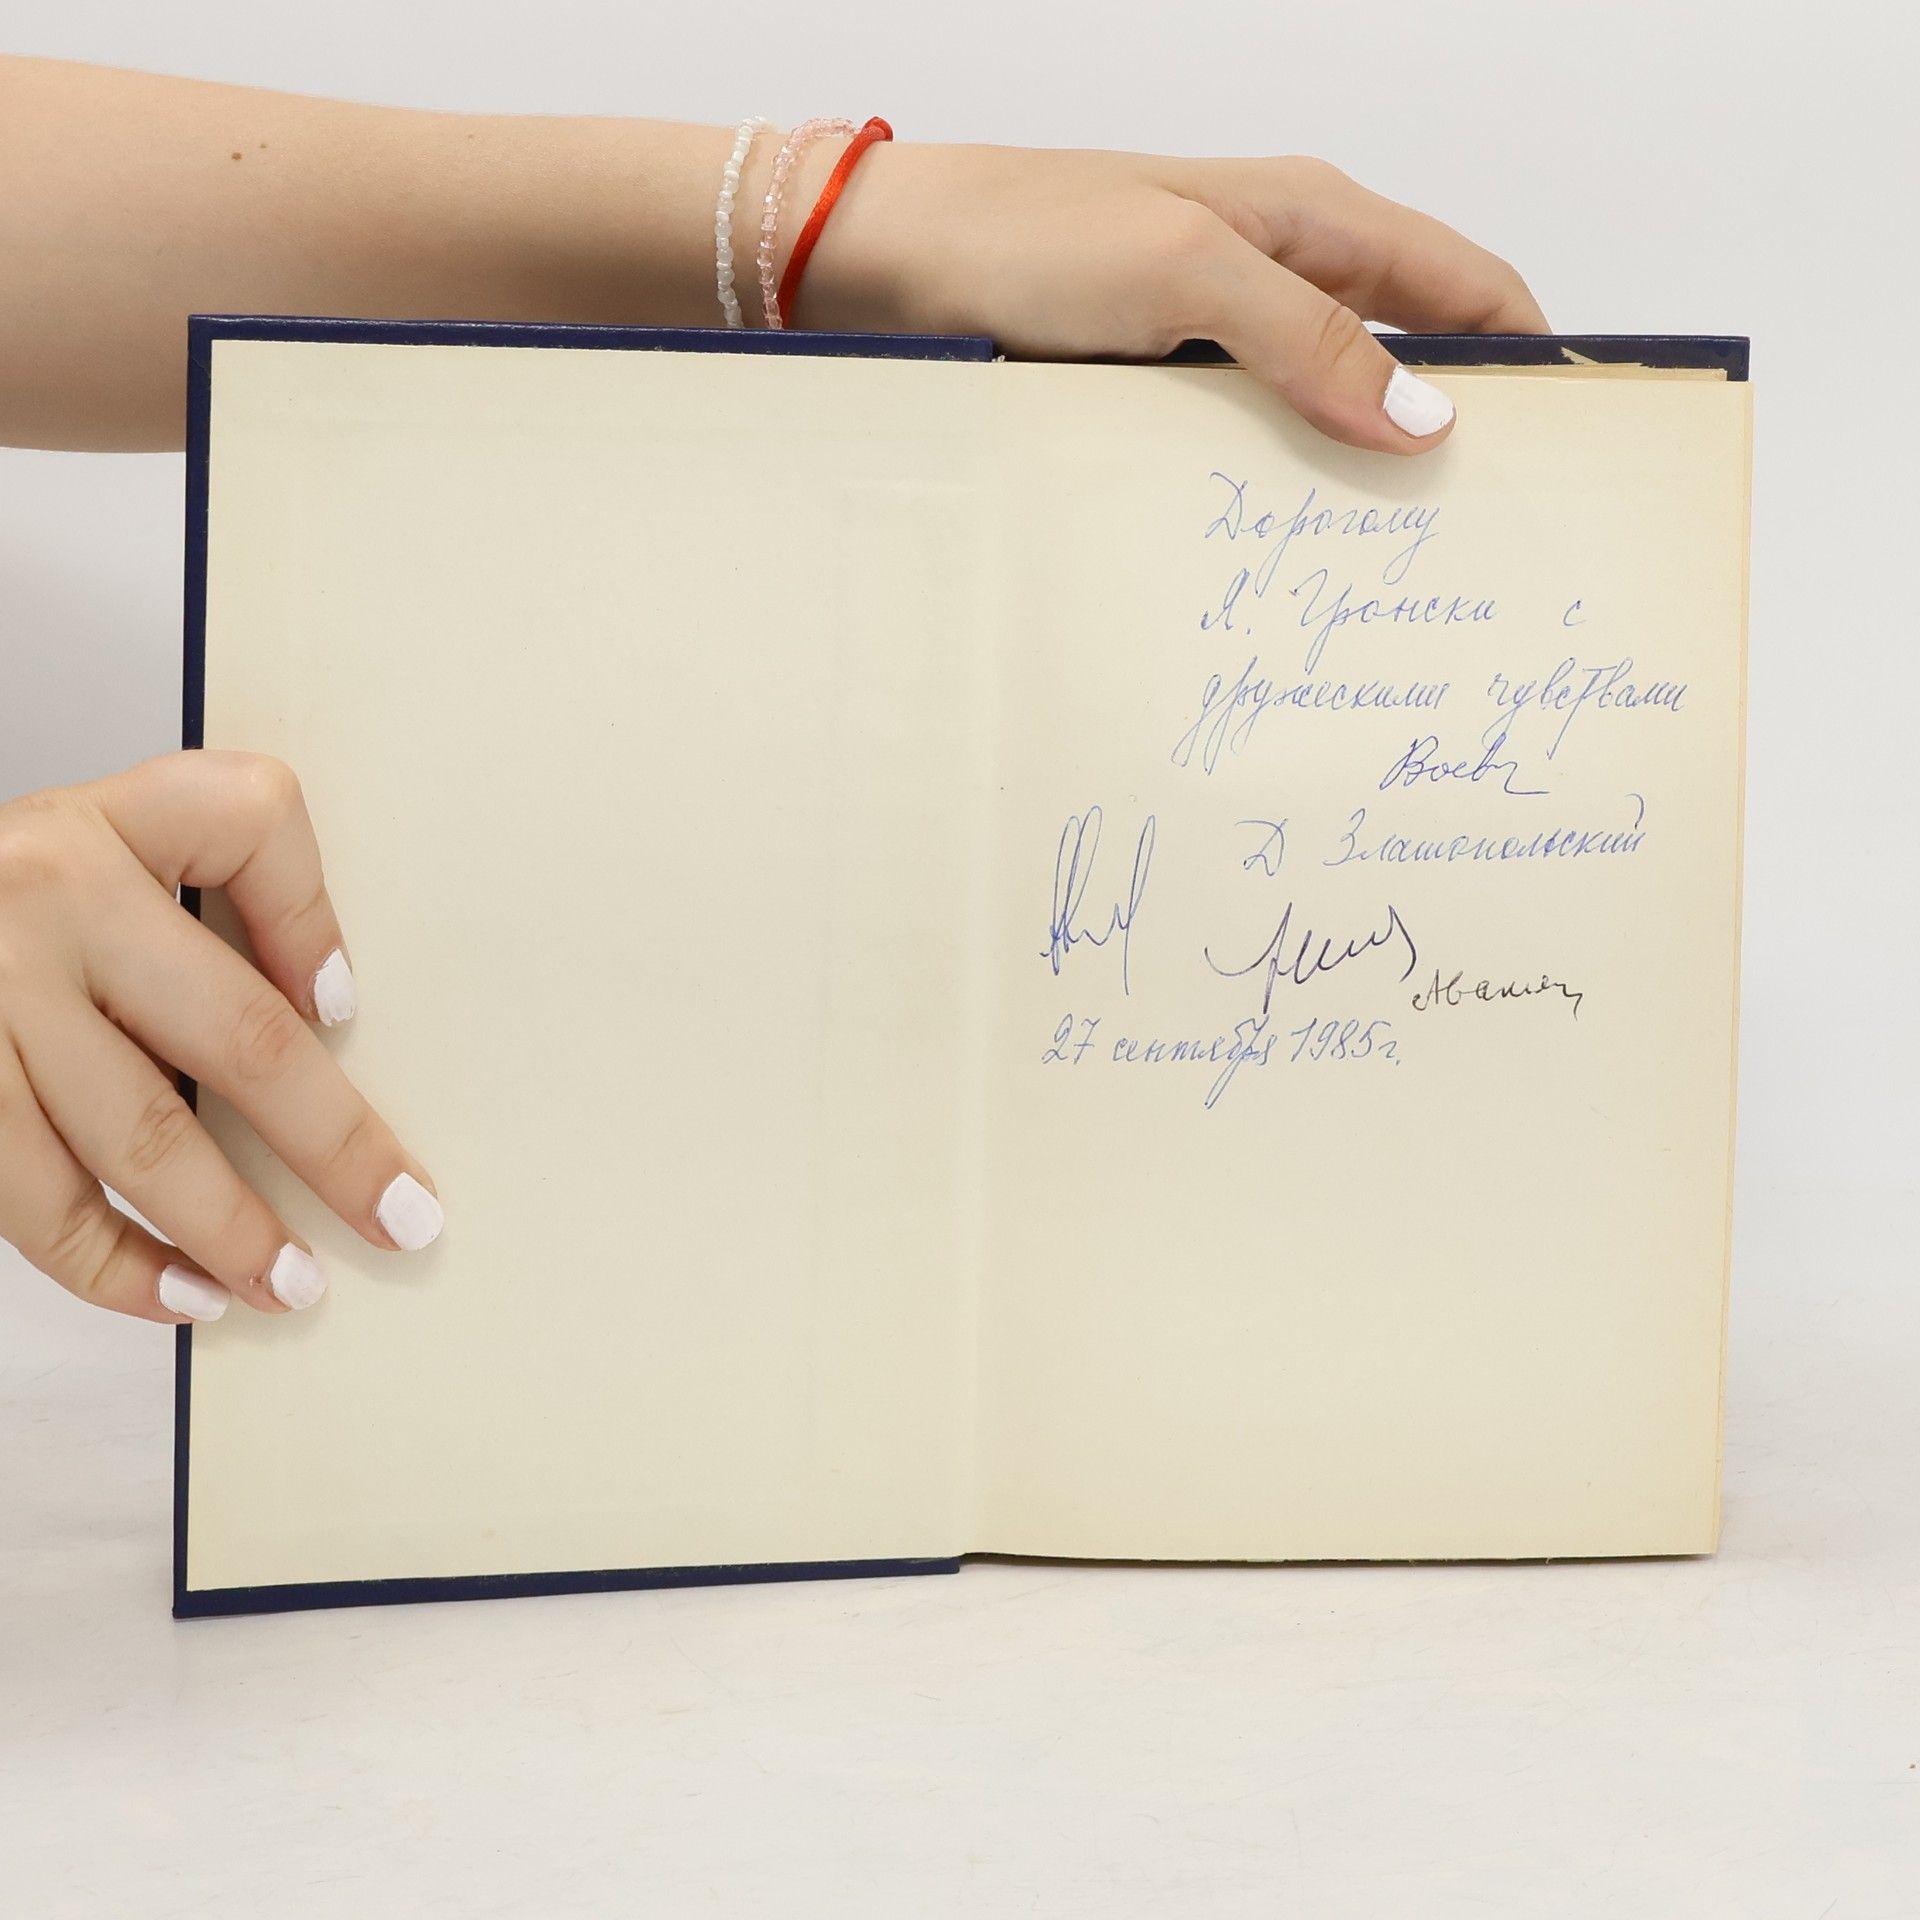 Дорогому
Я. Гронски с
дружескими чувствами
Д Златопольский
27 сентября 1985г.